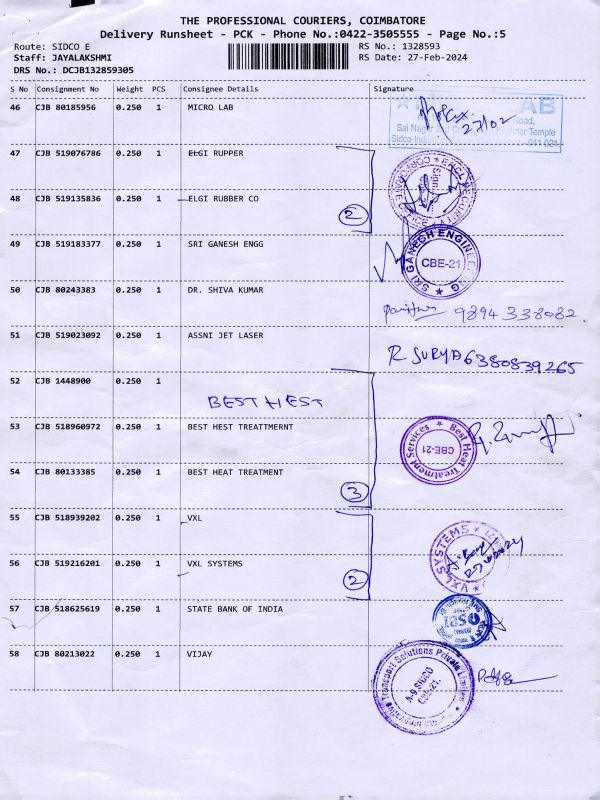 THE PROFESSIONAL COURIERS, COIMBATORE
Delivery Runsheet - PCK - Phone No.:0422-3505555 - Page No.:5
Route: SIDCO E RS No.: 1328593
Staff: JAYALAKSHMI RS Date: 27-Feb-2024
DRS No.: DCJB132859305
S No Consignment No Weight PCS Consignee Details Signature
46 CJB 80185956 0.250 1 MICRO LAB
LAB
27/02
Road,
Sai Nagar Temple
641 021
47 CJB 519076786 0.250 1 ELGI RUPPER
48 CJB 519135836 0.250 1 ELGI RUBBER CO
2
49 CJB 519183377 0.250 1 SRI GANESH ENGG
SRI GANESH ENGINEERING
CBE-21
50 CJB 80243383 0.250 1 DR. SHIVA KUMAR
9894 338082
51 CJB 519023092 0.250 1 ASSNI JET LASER
R SURYA 6380839265
52 CJB 1448900 0.250 1
BEST HEST
53 CJB 518960972 0.250 1 BEST HEST TREATTMERNT
Best Heat Treatment Services
CBE-21
54 CJB 80133385 0.250 1 BEST HEAT TREATMENT
3
55 CJB 518939202 0.250 1 VXL
56 CJB 519216201 0.250 1 VXL SYSTEMS
VXL SYSTEMS
2
57 CJB 518625619 0.250 1 STATE BANK OF INDIA
58 CJB 80213022 0.250 1 VIJAY
Transport Solutions Private Limited
A-9 SIDCO
CBE-21.